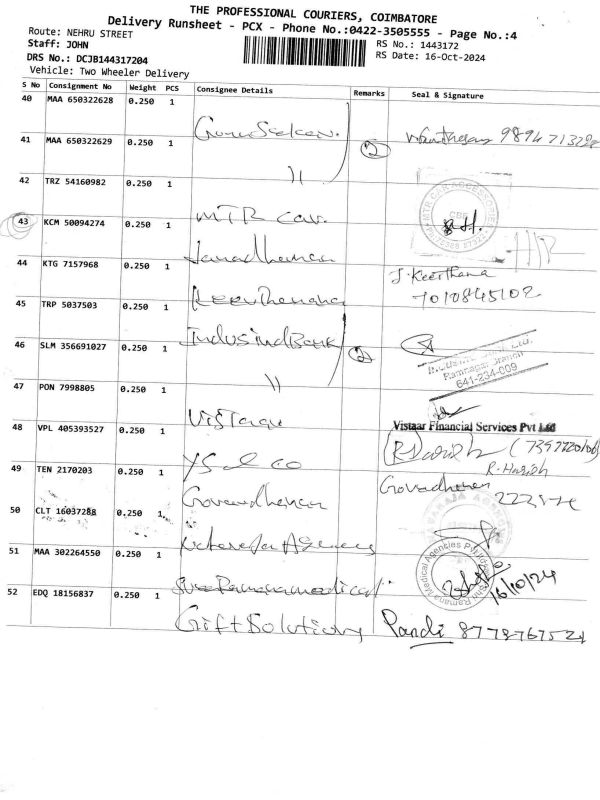 THE PROFESSIONAL COURIERS, COIMBATORE
Delivery Runsheet - PCX - Phone No.:0422-3505555 - Page No.:4
Route: NEHRU STREET
RS No.: 1443172
Staff: JOHN
RS Date: 16-Oct-2024
DRS No.: DCJB144317204
Vehicle: Two Wheeler Delivery
S No Consignment No Weight PCS Consignee Details Remarks Seal & Signature
40 MAA 650322628 0.250 1
2 9894713
41 MAA 650322629 0.250 1
11
42 TRZ 54160982 0.250 1
MTR Car.
43 KCM 50094274 0.250 1
Janadhanan
44 KTG 7157968 0.250 1
J. Keerthana
7010845102
45 TRP 5037503 0.250 1
IndusindBank
46 SLM 356691027 0.250 1
2
Ramnagar Branch
641-234-009
11
47 PON 7998805 0.250 1
Vistaar
Vistaar Financial Services Pvt Ltd
48 VPL 405393527 0.250 1
R. Harish
49 TEN 2170203 0.250 1
Govardhanan
50 CLT 16037288 0.250 1
Agencies
51 MAA 302264550 0.250 1
Sree Ramana medical
Ramana Medical Agencies
16/10/24
52 EDQ 18156837 0.250 1
Gift Solution Pandi 8778767521